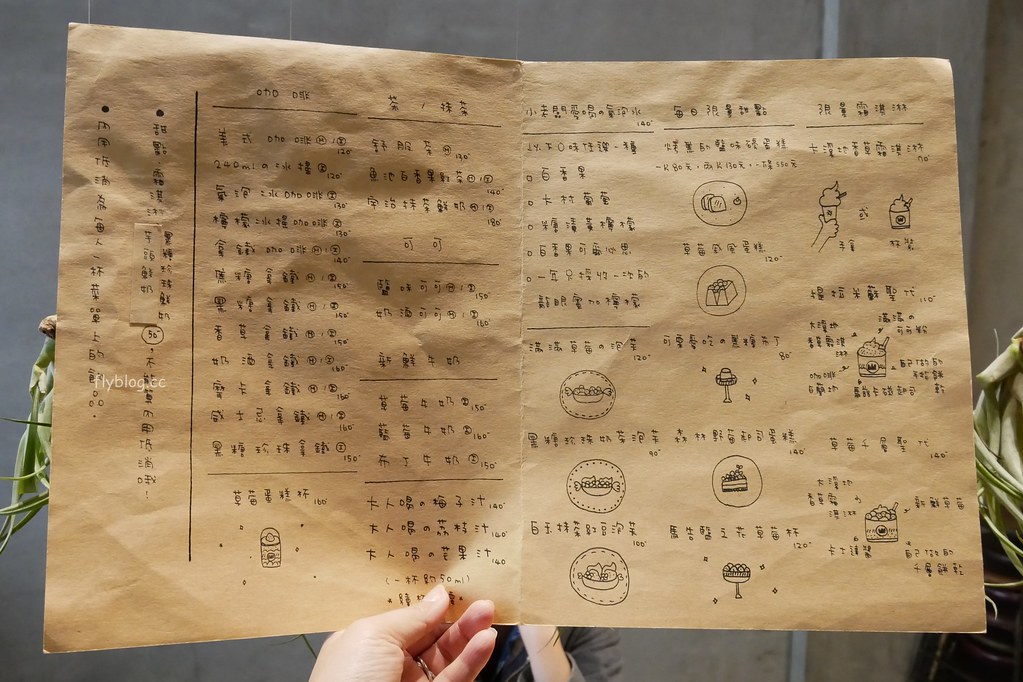 • 內用低消為每人/杯菜單上的飲品。
• 甜點、霜淇淋、
芋頭鮮奶
黑糖珍珠鮮奶
50
不能算內用低消哦！
flyblog.cc
美式 Ⓗ/Ⓘ 120
240ml の冰樓 Ⓘ 120
氣泡冰 Ⓘ 130
檸檬冰 Ⓘ 130
拿鐵 Ⓗ/Ⓘ 140
焦糖拿鐵 Ⓗ/Ⓘ 150
黑糖拿鐵 Ⓗ/Ⓘ 150
香草拿鐵 Ⓗ/Ⓘ 150
奶酒拿鐵 Ⓗ/Ⓘ 160
摩卡拿鐵 Ⓗ/Ⓘ 160
威士忌拿鐵 Ⓗ/Ⓘ 160
黑糖珍珠拿鐵 Ⓘ 150
草莓蛋糕杯 160
茶/抹茶
舒服茶 Ⓗ 130
魚池百香果紅茶 Ⓗ/Ⓘ 140
宇治抹茶鮮奶 Ⓗ/Ⓘ 180
可可
鹽味可可 Ⓗ/Ⓘ 150
奶酒可可 Ⓗ/Ⓘ 160
新鮮牛奶
草莓牛奶 Ⓘ 150
藍莓牛奶 Ⓘ 160
布丁牛奶 Ⓘ 150
大人喝の梅子汁 140
大人喝の荔枝汁 140
大人喝の芒果汁 140
(一杯約50ml)
小老闆愛喝の氣泡水 140
以下口味任選一種
百香果
卡村葡萄
糖漬黃檸檬
百香果可爾必思
一年只採收一次的
龍眼蜜加檸檬
滿滿草莓の泡芙 120
黑糖珍珠奶茶泡芙 90
白玉抹茶紅豆泡芙 100
每日限量甜點
烤焦的鹽味磅蛋糕
一片80元，兩片150元，一條550元
草莓風風蛋糕 120
可愛愛吃の黑糖布丁 80
森林野莓起司蛋糕 140
馬告鹽之花草莓杯 120
限量霜淇淋
大溪地香草霜淇淋 70
或
手拿
杯裝
提拉米蘇聖代 110
滿滿の可可粉
大溪地
香草霜淇淋
自己做的
手指餅乾
馬斯卡彭起司
草莓千層聖代 140
大溪地
香草霜淇淋
新鮮草莓
卡士達醬
自己做的
千層餅乾